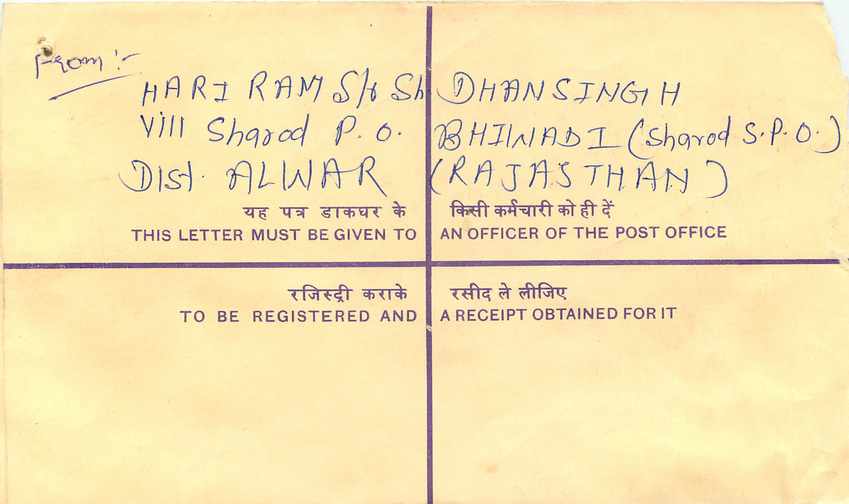 From :-
HARI RAM S/o Sh DHANSINGH
Vill Sharod P.O. BHIWADI (Sharod S.P.O.)
Dist. ALWAR (RAJASTHAN)
यह पत्र डाकघर के किसी कर्मचारी को ही दें
THIS LETTER MUST BE GIVEN TO AN OFFICER OF THE POST OFFICE
रजिस्ट्री कराके रसीद ले लीजिए
TO BE REGISTERED AND A RECEIPT OBTAINED FOR IT